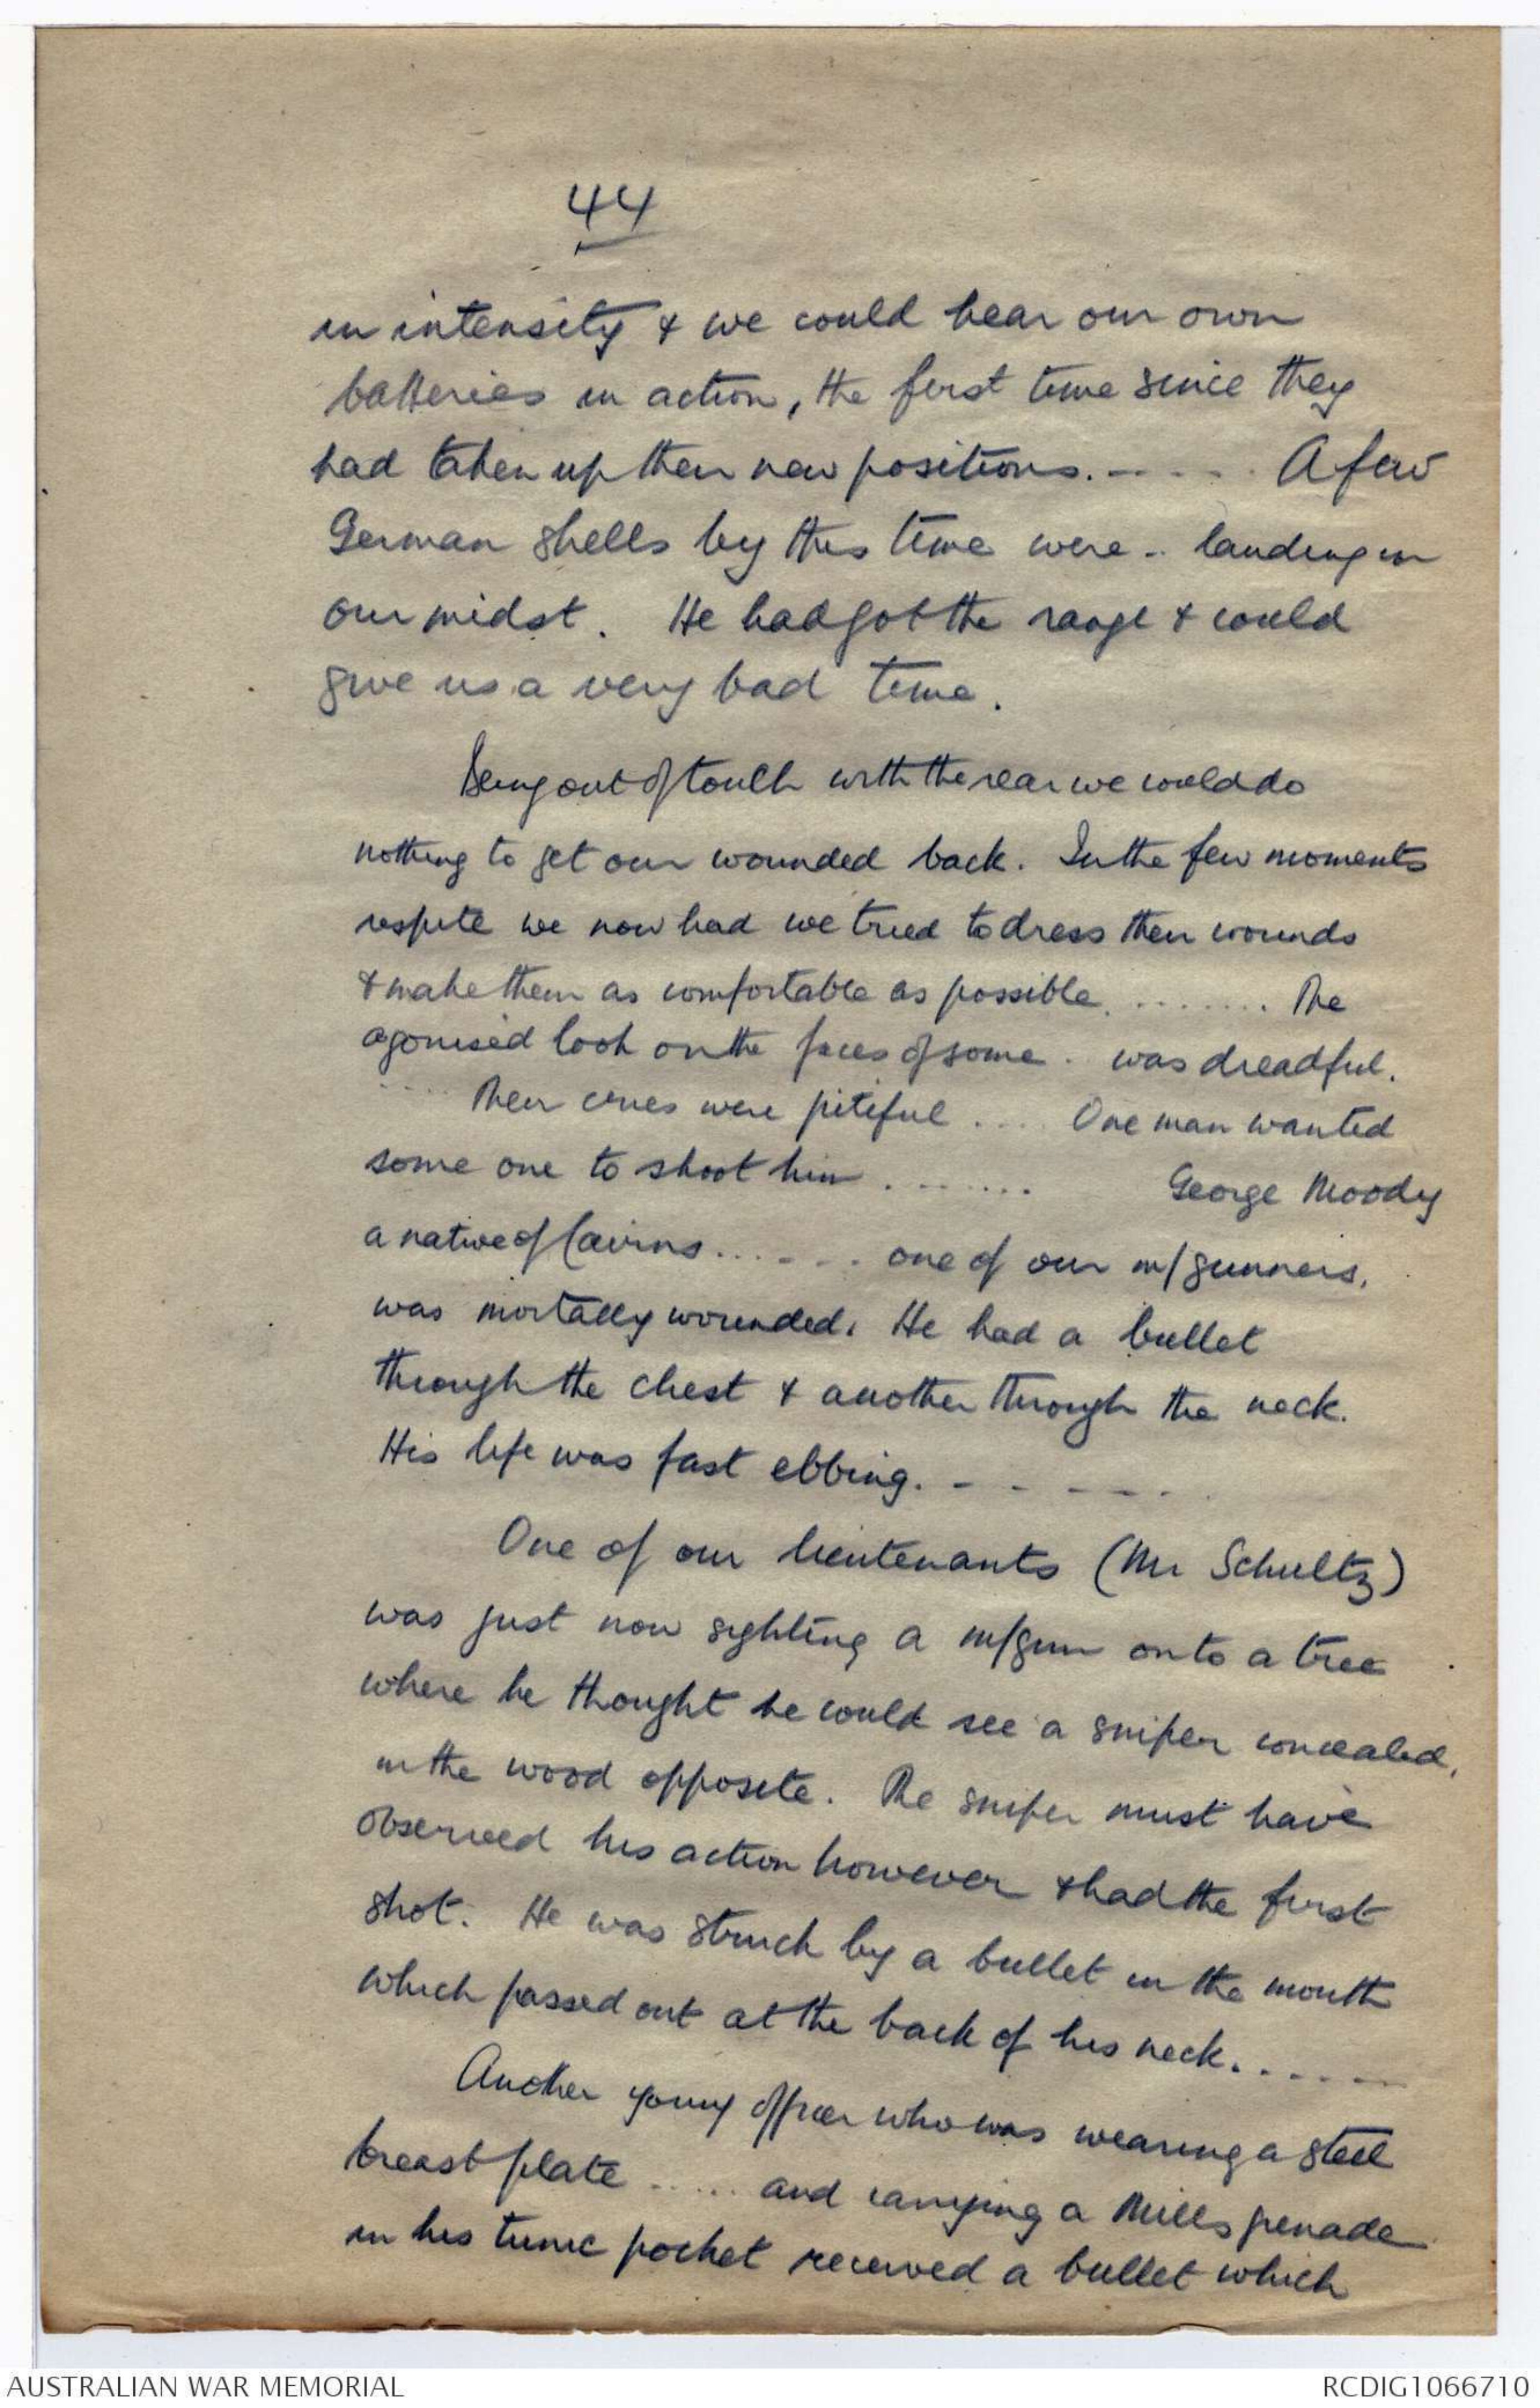 44
in intensity & we could hear our own
batteries in action, the first time since they
had taken up their new positions. - - - - A few
German shells by this time were .. landing in
our midst. He had got the range & could
give us a very bad time.
Being out of touch with the rear we could do
nothing to get our wounded back. In the few moments
respite we now had we tried to dress their wounds
& make them as comfortable as possible. ........ The
agonised look on the faces of some . was dreadful.
.... Their cries were pitiful .... One man wanted
some one to shoot him ....... George Moody
a native of Cairns ....... one of our m/gunners,
was mortally wounded. He had a bullet
through the chest & another through the neck.
His life was fast ebbing. - - - - - -
One of our lieutenants (Mr Schultz)
was just now sighting a m/gun onto a tree
where he thought he could see a sniper concealed,
in the wood opposite. The sniper must have
observed his action however & had the first
shot. He was struck by a bullet in the mouth
which passed out at the back of his neck. ......
Another young officer who was wearing a steel
breastplate ...... and carrying a Mills grenade
in his tunic pocket received a bullet which
AUSTRALIAN WAR MEMORIAL
RCDIG1066710